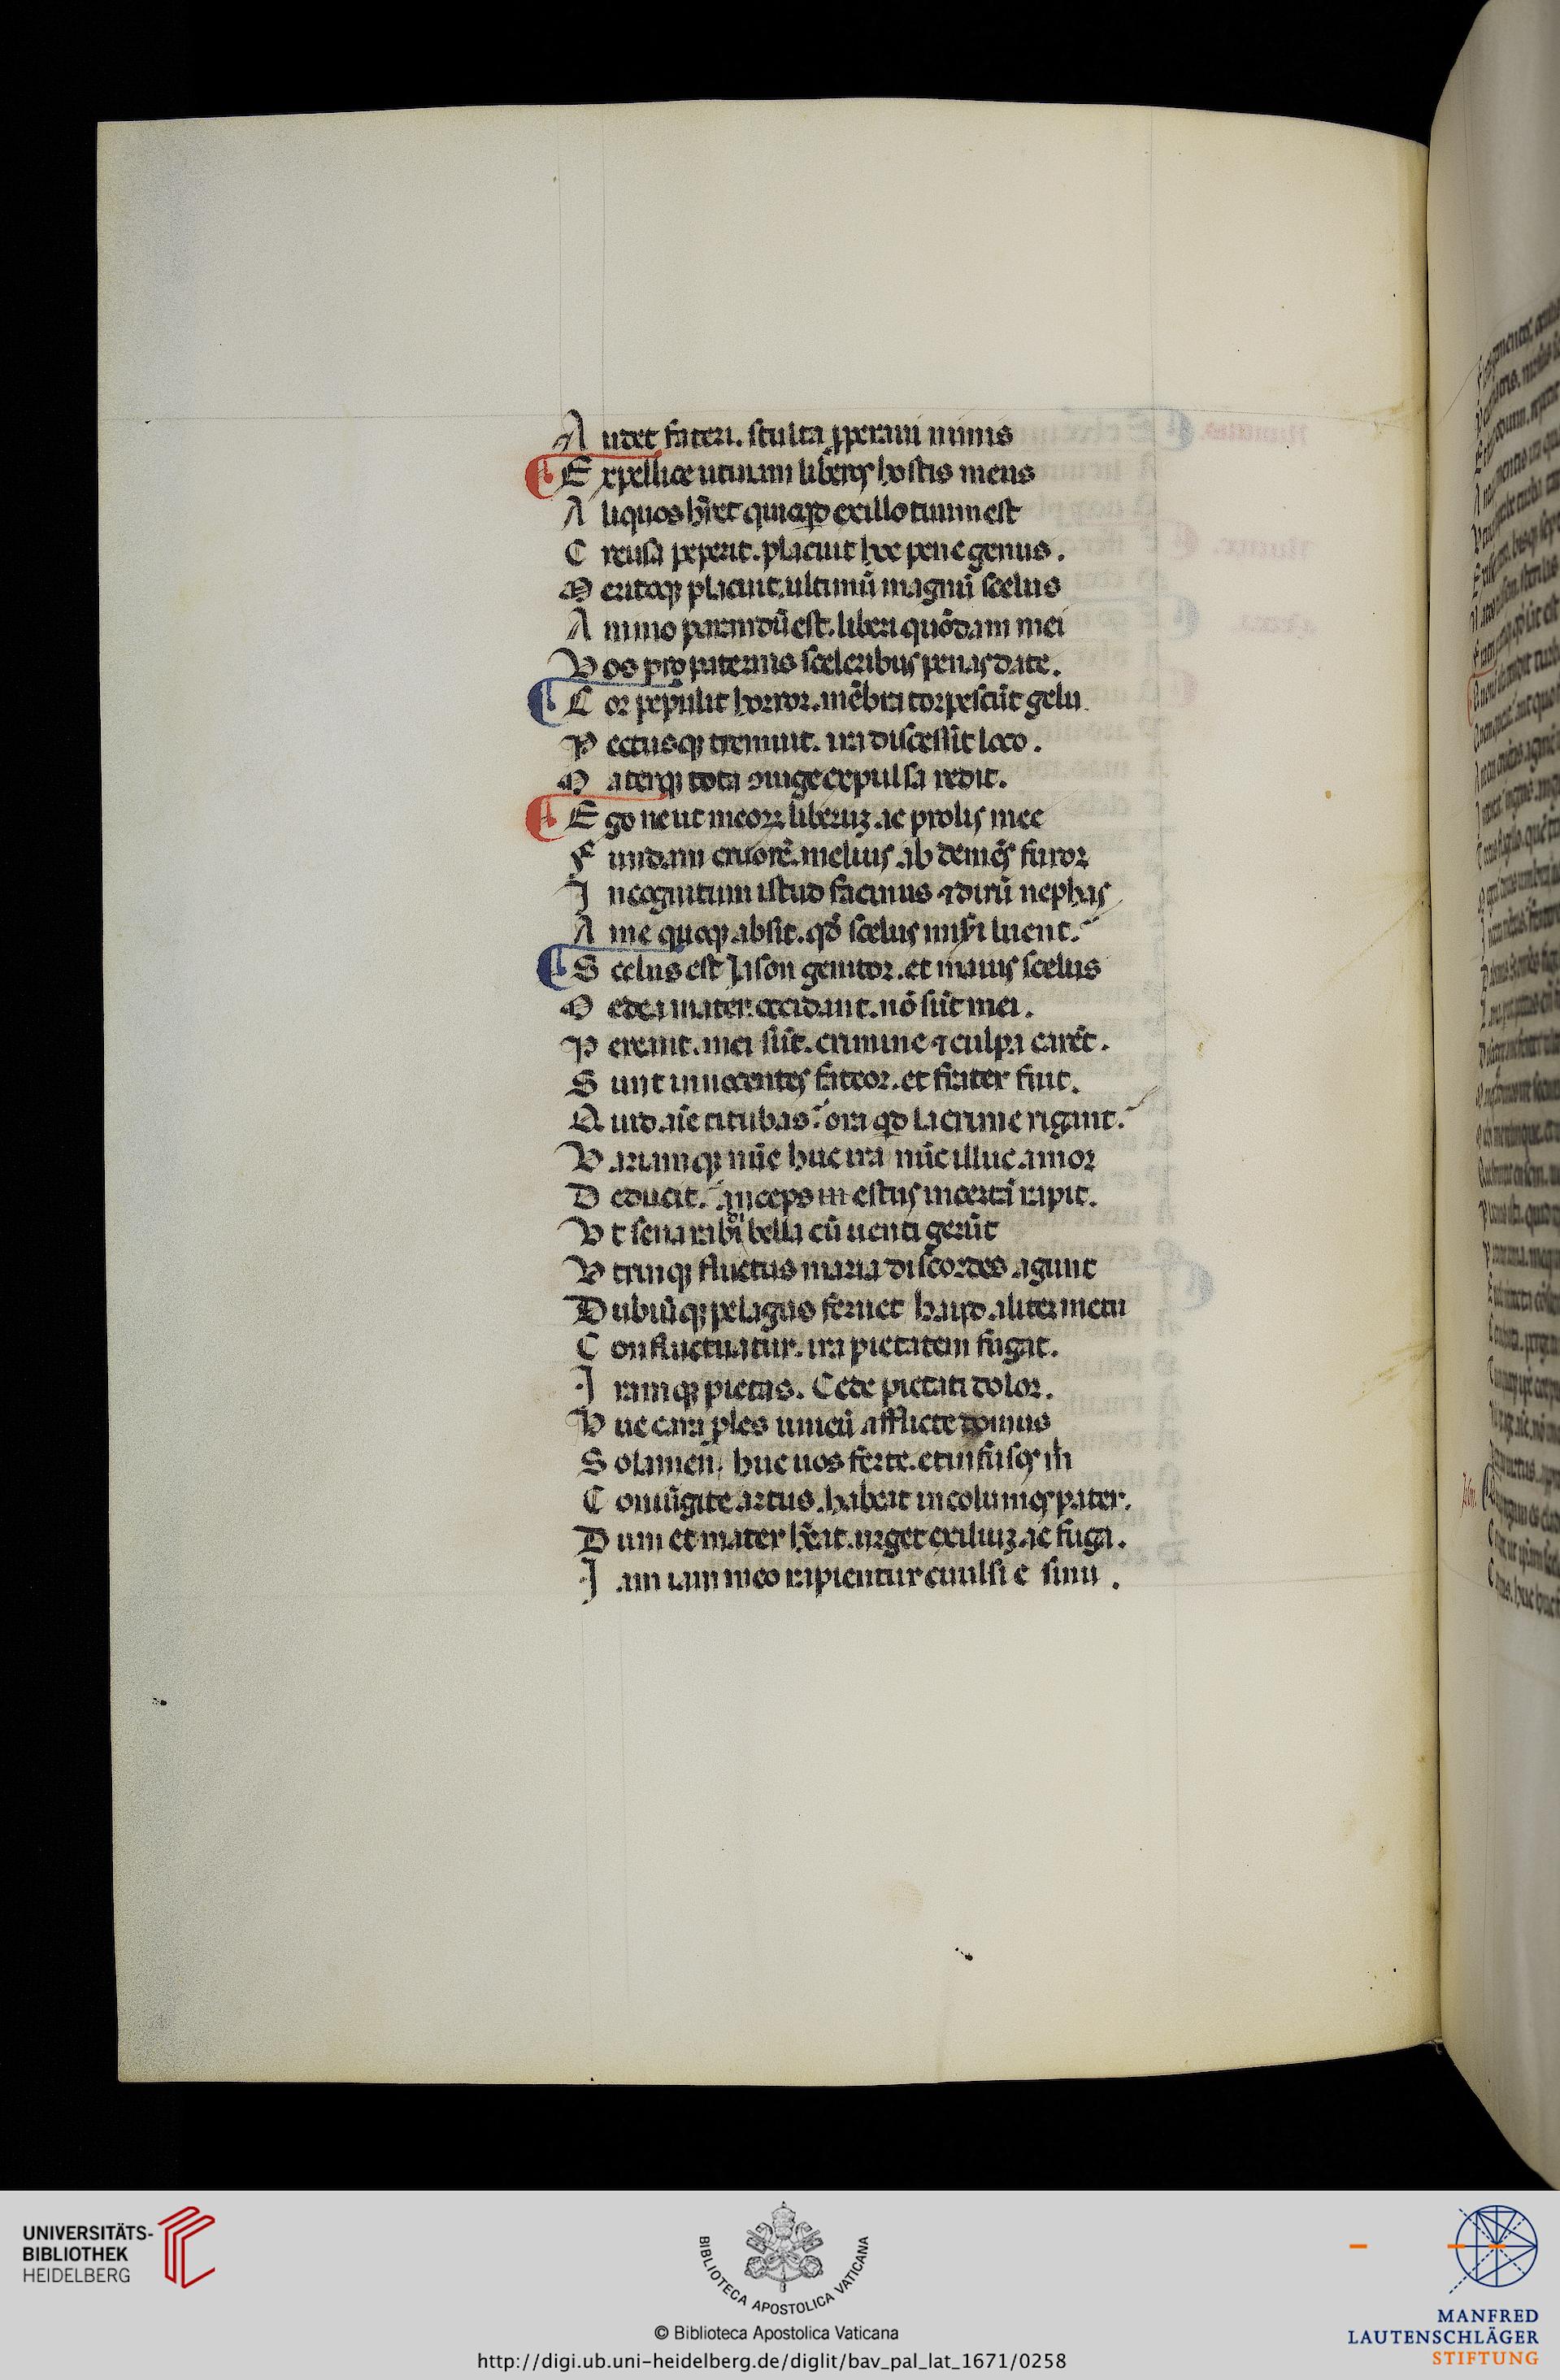 A udet fateri. stulta ꝓperaui nimis
E xpellice utinam liberos hostis meus
A liquos hr̄et quicqd exillo tuum est
C reusa peperit. placuit hoc pene genus.
M eritoqꝫ placuit. ultimū magnū scelus
A nimo parandū est. liberi quōdam mei
V os pro paternis sceleribus penas date.
C or pepulit horror. mēbra torpescūt gelu
P ectusqꝫ tremuit. ira discessit loco.
M aterqꝫ tota ↄiuge expulsa redit.
E gone ut meoꝝ liberuꝫ ac prolis mee
F undam cruorē. melius ah demēs furor
I ncognitum istud facinus ⁊ dirū nephas
A me quoqꝫ absit. qd̄ scelus miseri luent.
S celus est Iason genitor. et maius scelus
M edea mater. occidant. nō sūt mei.
P ereant. mei sūt. crimine ⁊ culpa carēt.
S unt innocentes fateor. et frater fuit.
Q uid aīe titubas? ora qd lacrime rigant.
V ariamqꝫ nūc huc ira nūc illuc amor
D educit. anceps estus incertā rapit.
V t seua rabidi bella cū uenti gerūt
V trinqꝫ fluctus maria discordes agunt
D ubiūqꝫ pelagus feruet haud aliter metu
C onfluctuatur. ira pietatem fugat.
I ramqꝫ pietas. Cede pietati dolor.
H uc cara ꝓles unicū afflicte domus
S olamen. huc uos ferte. et infusos m̄
C oniūgite artus. habeat incolumes pater.
D um et mater hēat. urget exiliuꝫ ac fuga.
I am iam meo rapientur euulsi e sinu.
UNIVERSITÄTS-
BIBLIOTHEK
HEIDELBERG
BIBLIOTECA APOSTOLICA VATICANA
© Biblioteca Apostolica Vaticana
http://digi.ub.uni-heidelberg.de/diglit/bav_pal_lat_1671/0258
MANFRED
LAUTENSCHLÄGER
STIFTUNG